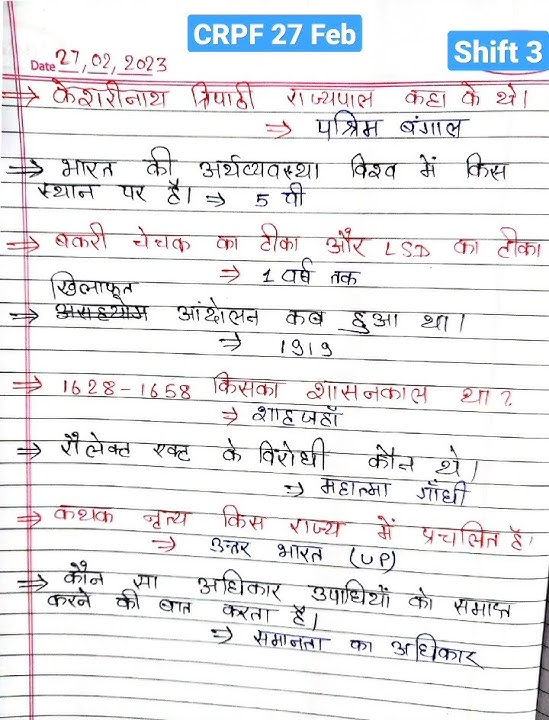 CRPF 27 Feb
Shift 3
Date 27, 02, 2023
⇒ केशरीनाथ त्रिपाठी राज्यपाल कहा के थे।
⇒ पश्चिम बंगाल
⇒ भारत की अर्थव्यवस्था विश्व में किस
स्थान पर है। ⇒ 5 वी
⇒ बकरी चेचक का टीका और LSD का टीका
⇒ 1 वर्ष तक
खिलाफत
⇒ असहयोग आंदोलन कब हुआ था।
⇒ 1919
⇒ 1628-1658 किसका शासनकाल था?
⇒ शाहजहाँ
⇒ रौलेक्ट एक्ट के विरोधी कौन थे।
⇒ महात्मा गाँधी
⇒ कथक नृत्य किस राज्य में प्रचलित है।
⇒ उत्तर भारत (UP)
⇒ कौन सा अधिकार उपाधियों को समाप्त
करने की बात करता है।
⇒ समानता का अधिकार